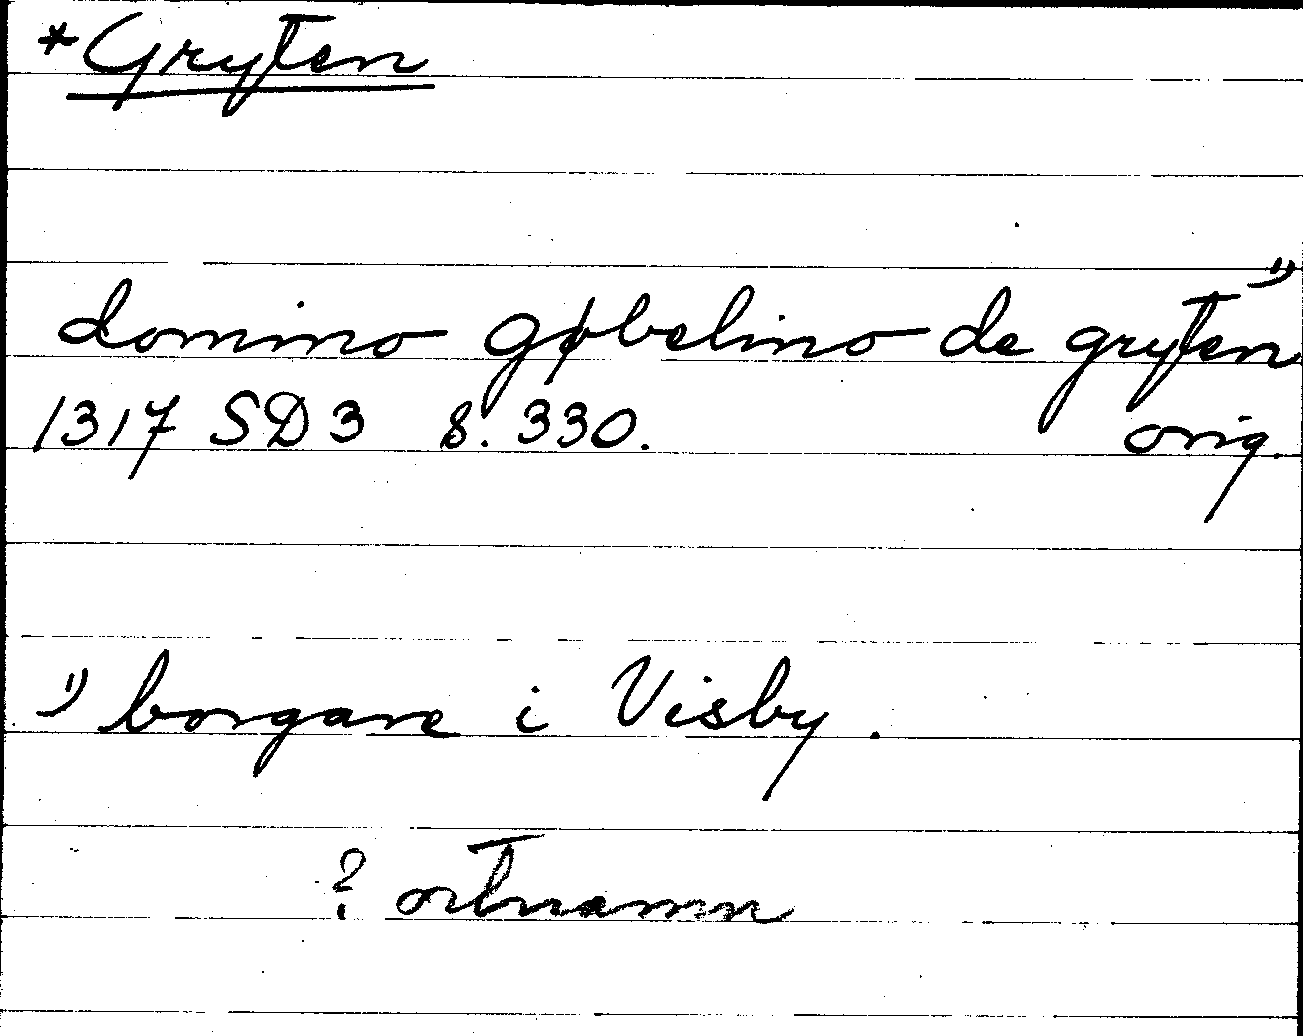 *Gryten
domino gøbelino de gryten 1)
1317 SD 3 s. 330. orig.
1) borgare i Visby.
? ortnamn